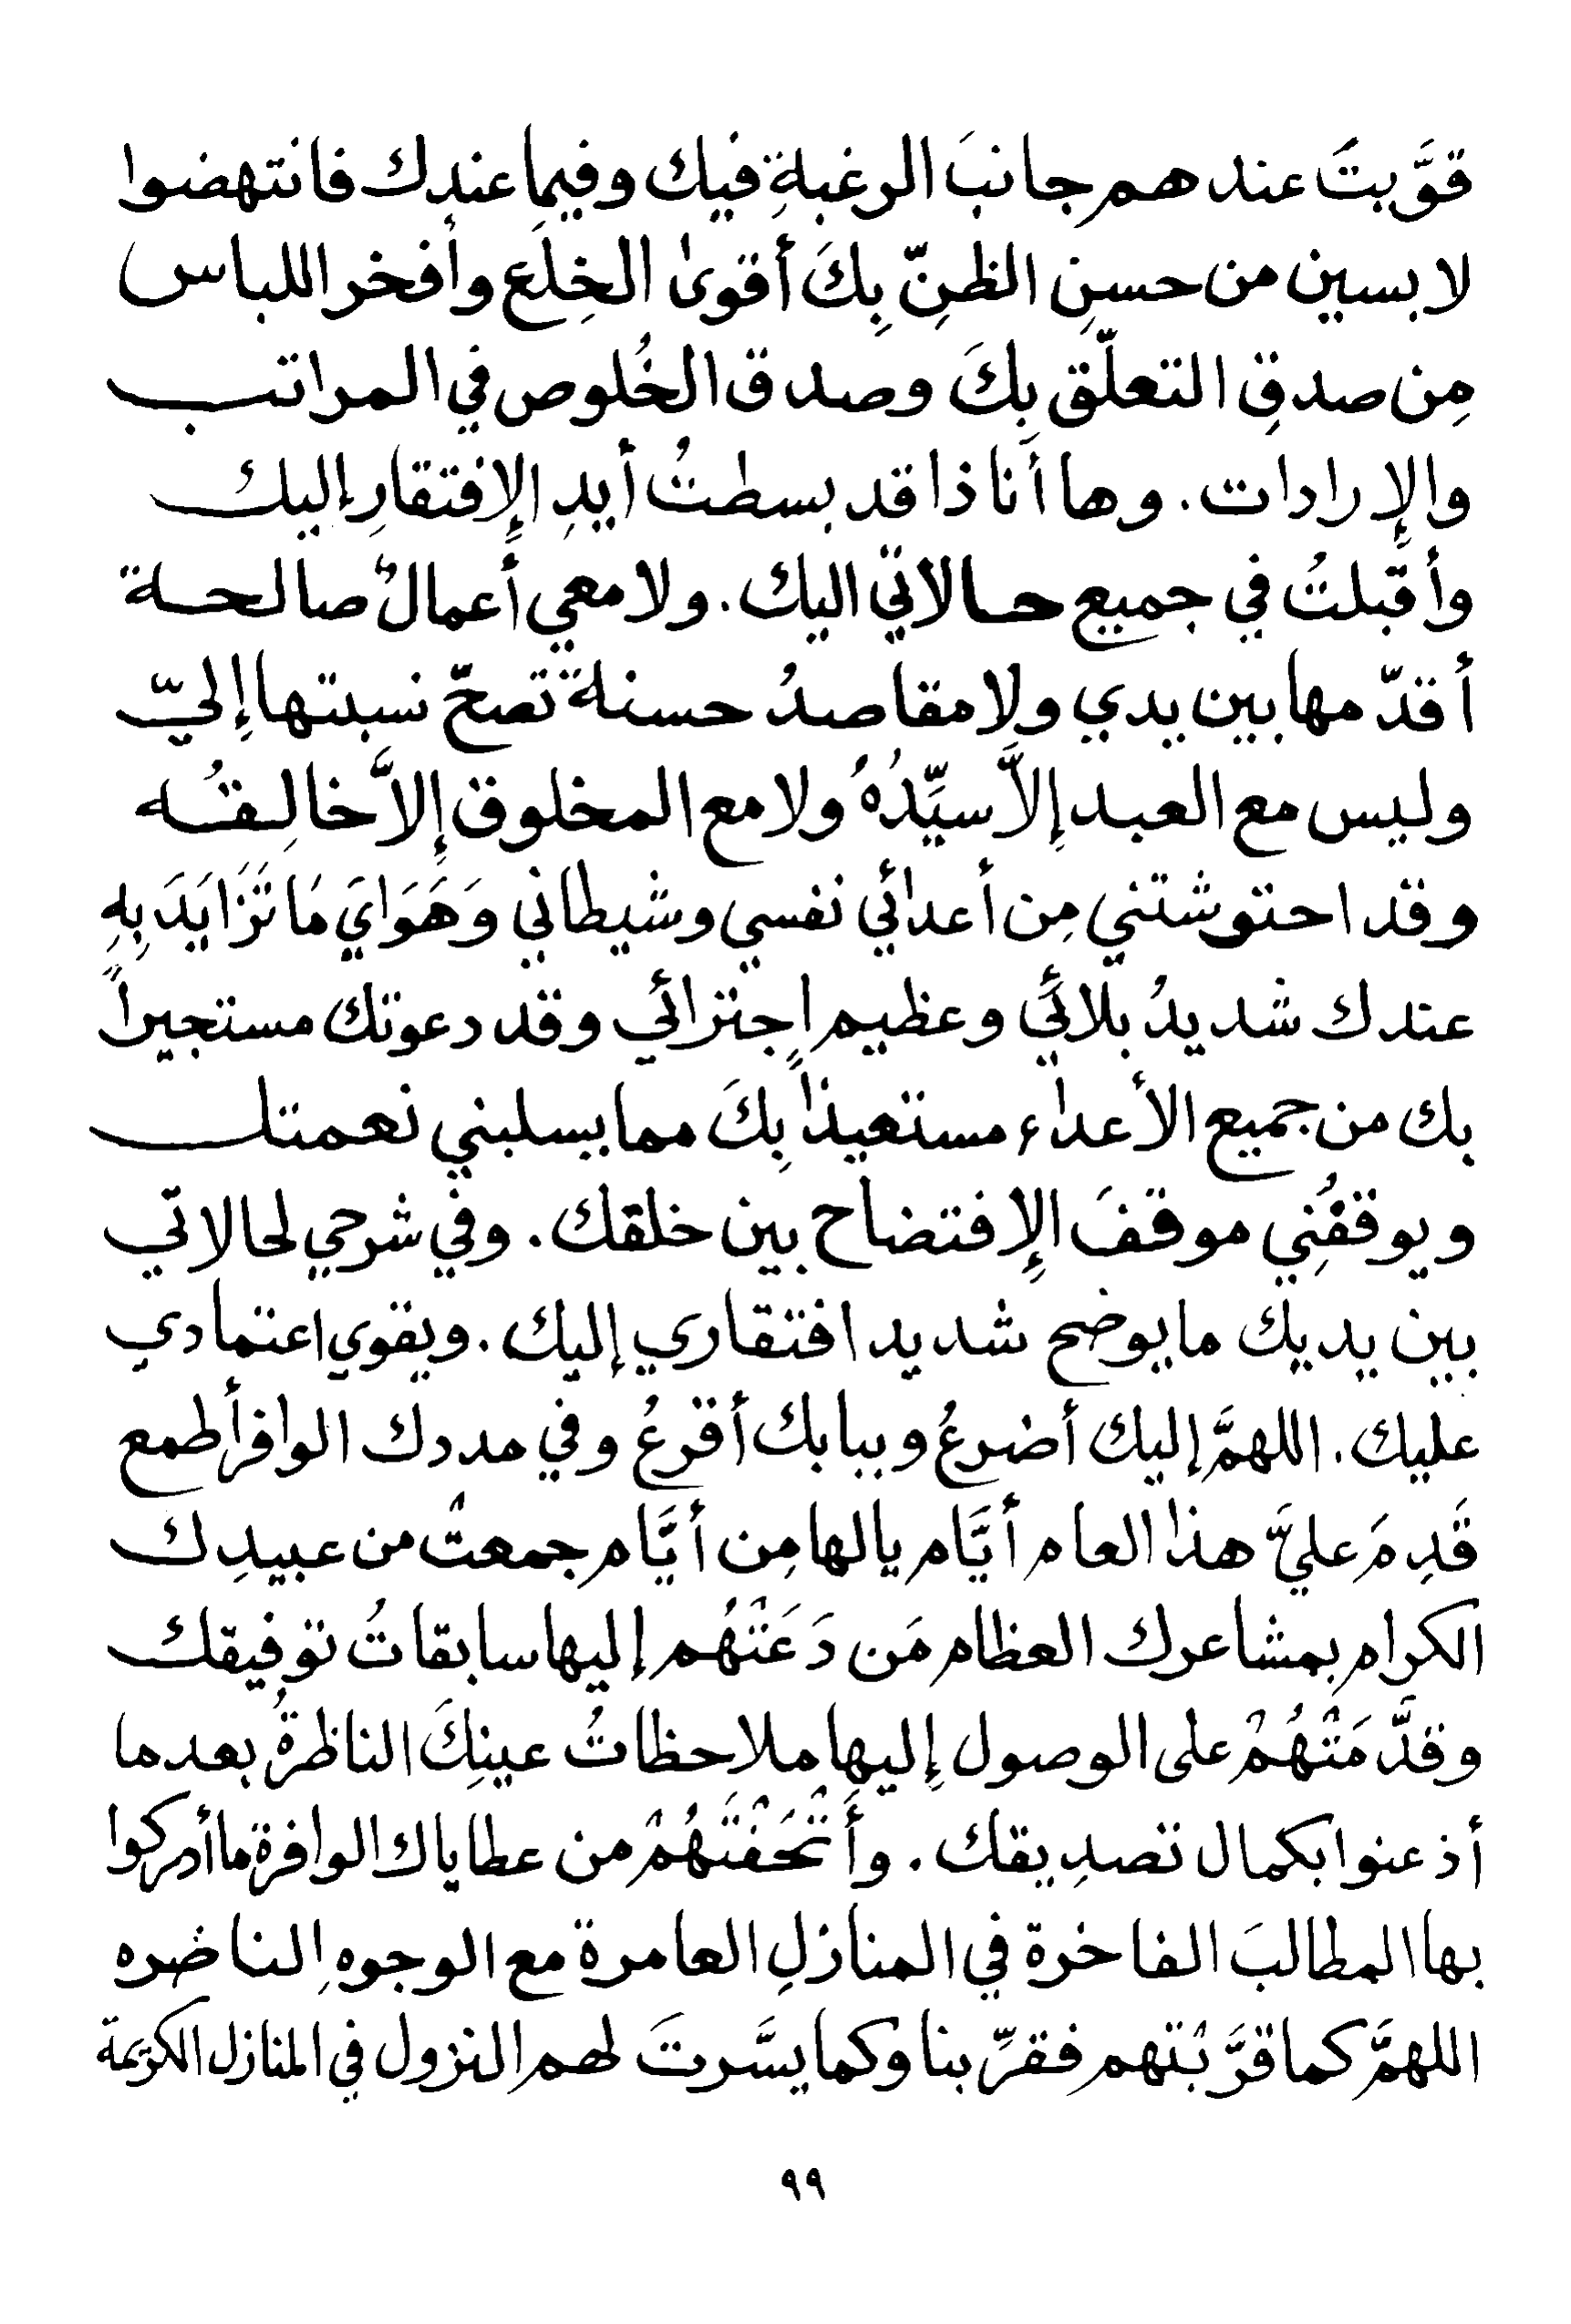 قوَّيتَ عندهم جانبَ الرغبةِ فيك وفيما عندك فانتهضوا
لابسين من حسنِ الظنِّ بِكَ أقوى الخِلَع وأفخر اللباس
مِن صدقِ التعلّق بِكَ وصدق الخُلوص في المراتب
والإرادات. وها أَنا ذا قد بسطتُ أيدِ الإفتقارِ إليك
وأقبلتُ في جميع حالاتي اليك. ولا معي أعمالٌ صالحة
أقدّمها بين يدي ولا مقاصدُ حسنة تصحّ نسبتها إليّ
وليس مع العبد إلاَّ سيِّدُهُ ولا مع المخلوق إلاَّ خالِقُه
وقد احتوشتني مِن أعدائي نفسي وشيطاني وَهَوَايَ مَا تَزَايَدَ بِهِ
عندك شديدُ بلائي وعظيم اجتزائي وقد دعوتك مستجيراً
بك من جميع الأعداء مستعيذاً بِكَ مما يسلبني نعمتك
ويوقفُني موقفَ الإفتضاح بين خلقك. وفي شرحي لحالاتي
بين يديك ما يوضح شديد افتقاري إليك. ويقوي اعتمادي
عليك. اللهمَّ إليك أضرعُ وببابك أقرعُ وفي مددك الوافر أطمع
قَدِمَ عليَّ هذا العام أيَّام يالها مِن أيَّام جمعتْ من عبيدِك
الكرام بمشاعرك العظام مَن دَعَتْهُم إليها سابقاتُ توفيقك
وقدَّمَتْهُمْ على الوصول إليها ملاحظاتُ عينِكَ الناظرةُ بعدما
أذعنوا بكمال تصديقك. وأَتْحَفْتَهُمْ من عطاياك الوافرة ما أدركوا
بها المطالبَ الفاخرة في المنازلِ العامرة مع الوجوه الناضره
اللهمَّ كما قرَّبْتهم فقرِّبنا وكما يسَّرتَ لهم النزول في المنازل الكريمة
٩٩